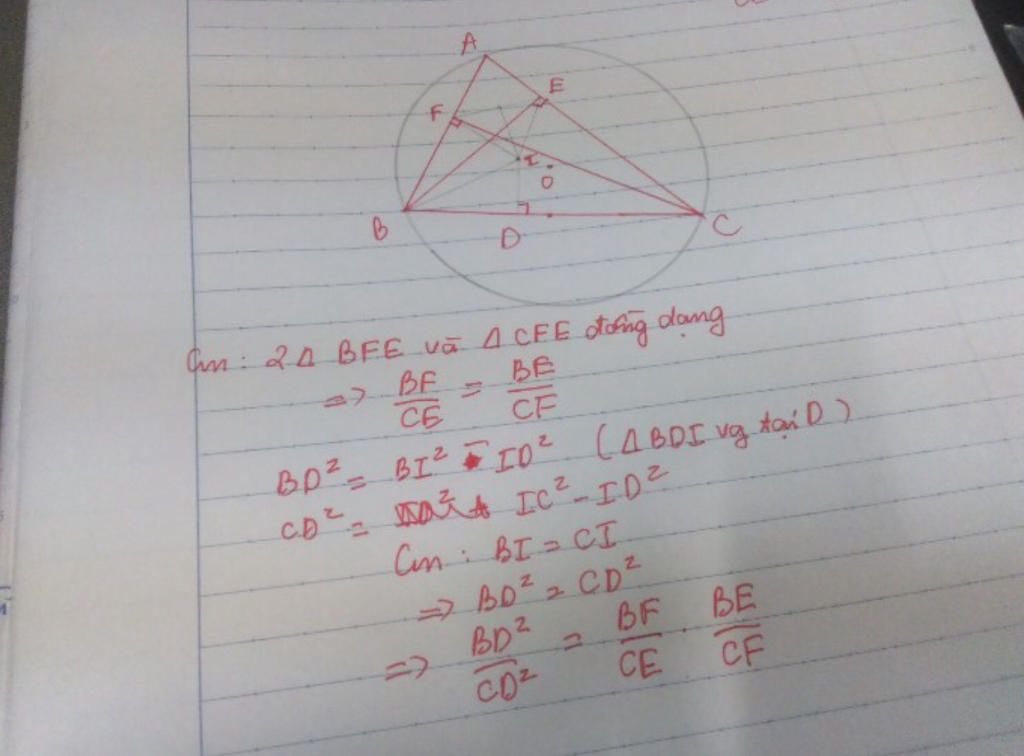 A
E
F
I
O
B
D
C
Cm: 2Δ BFE và Δ CFE đồng dạng
=> BF/CE = BE/CF
BD² = BI² - ID² (ΔBDI vg tại D)
CD² = IC² - ID²
Cm: BI = CI
=> BD² = CD²
=> BD²/CD² = BF/CE . BE/CF